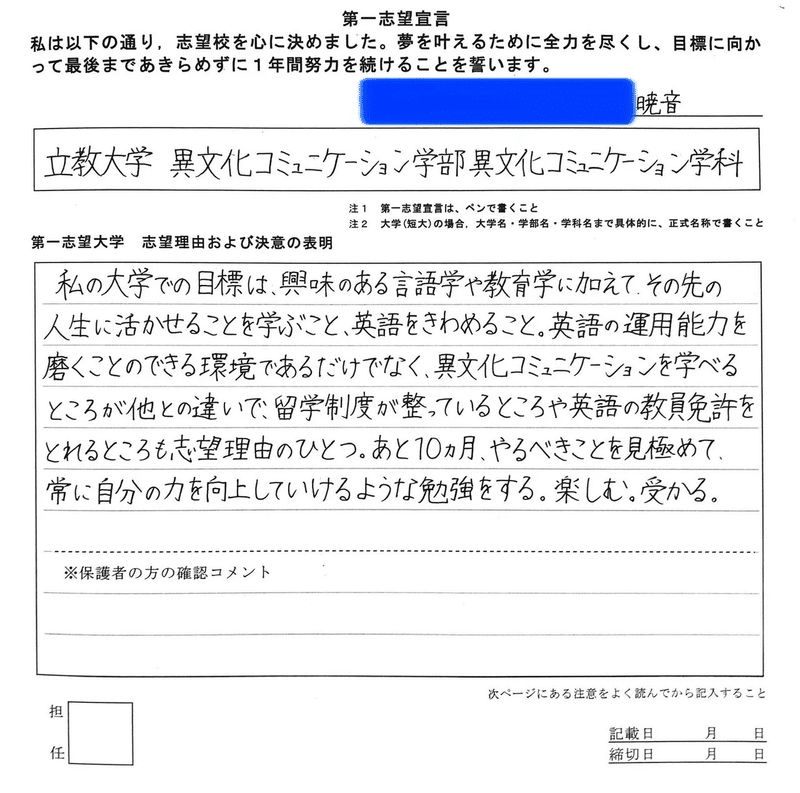 第一志望宣言
私は以下の通り，志望校を心に決めました。夢を叶えるために全力を尽くし、目標に向か
って最後まであきらめずに１年間努力を続けることを誓います。
暁音
立教大学 異文化コミュニケーション学部異文化コミュニケーション学科
注１ 第一志望宣言は、ペンで書くこと
注２ 大学(短大)の場合，大学名・学部名・学科名まで具体的に、正式名称で書くこと
第一志望大学 志望理由および決意の表明
私の大学での目標は、興味のある言語学や教育学に加えて、その先の
人生に活かせることを学ぶこと、英語をきわめること。英語の運用能力を
磨くことのできる環境であるだけでなく、異文化コミュニケーションを学べる
ところが他との違いで、留学制度が整っているところや英語の教員免許を
とれるところも志望理由のひとつ。あと10ヵ月、やるべきことを見極めて、
常に自分の力を向上していけるような勉強をする。楽しむ。受かる。
※保護者の方の確認コメント
次ページにある注意をよく読んでから記入すること
担
任
記載日 月 日
締切日 月 日